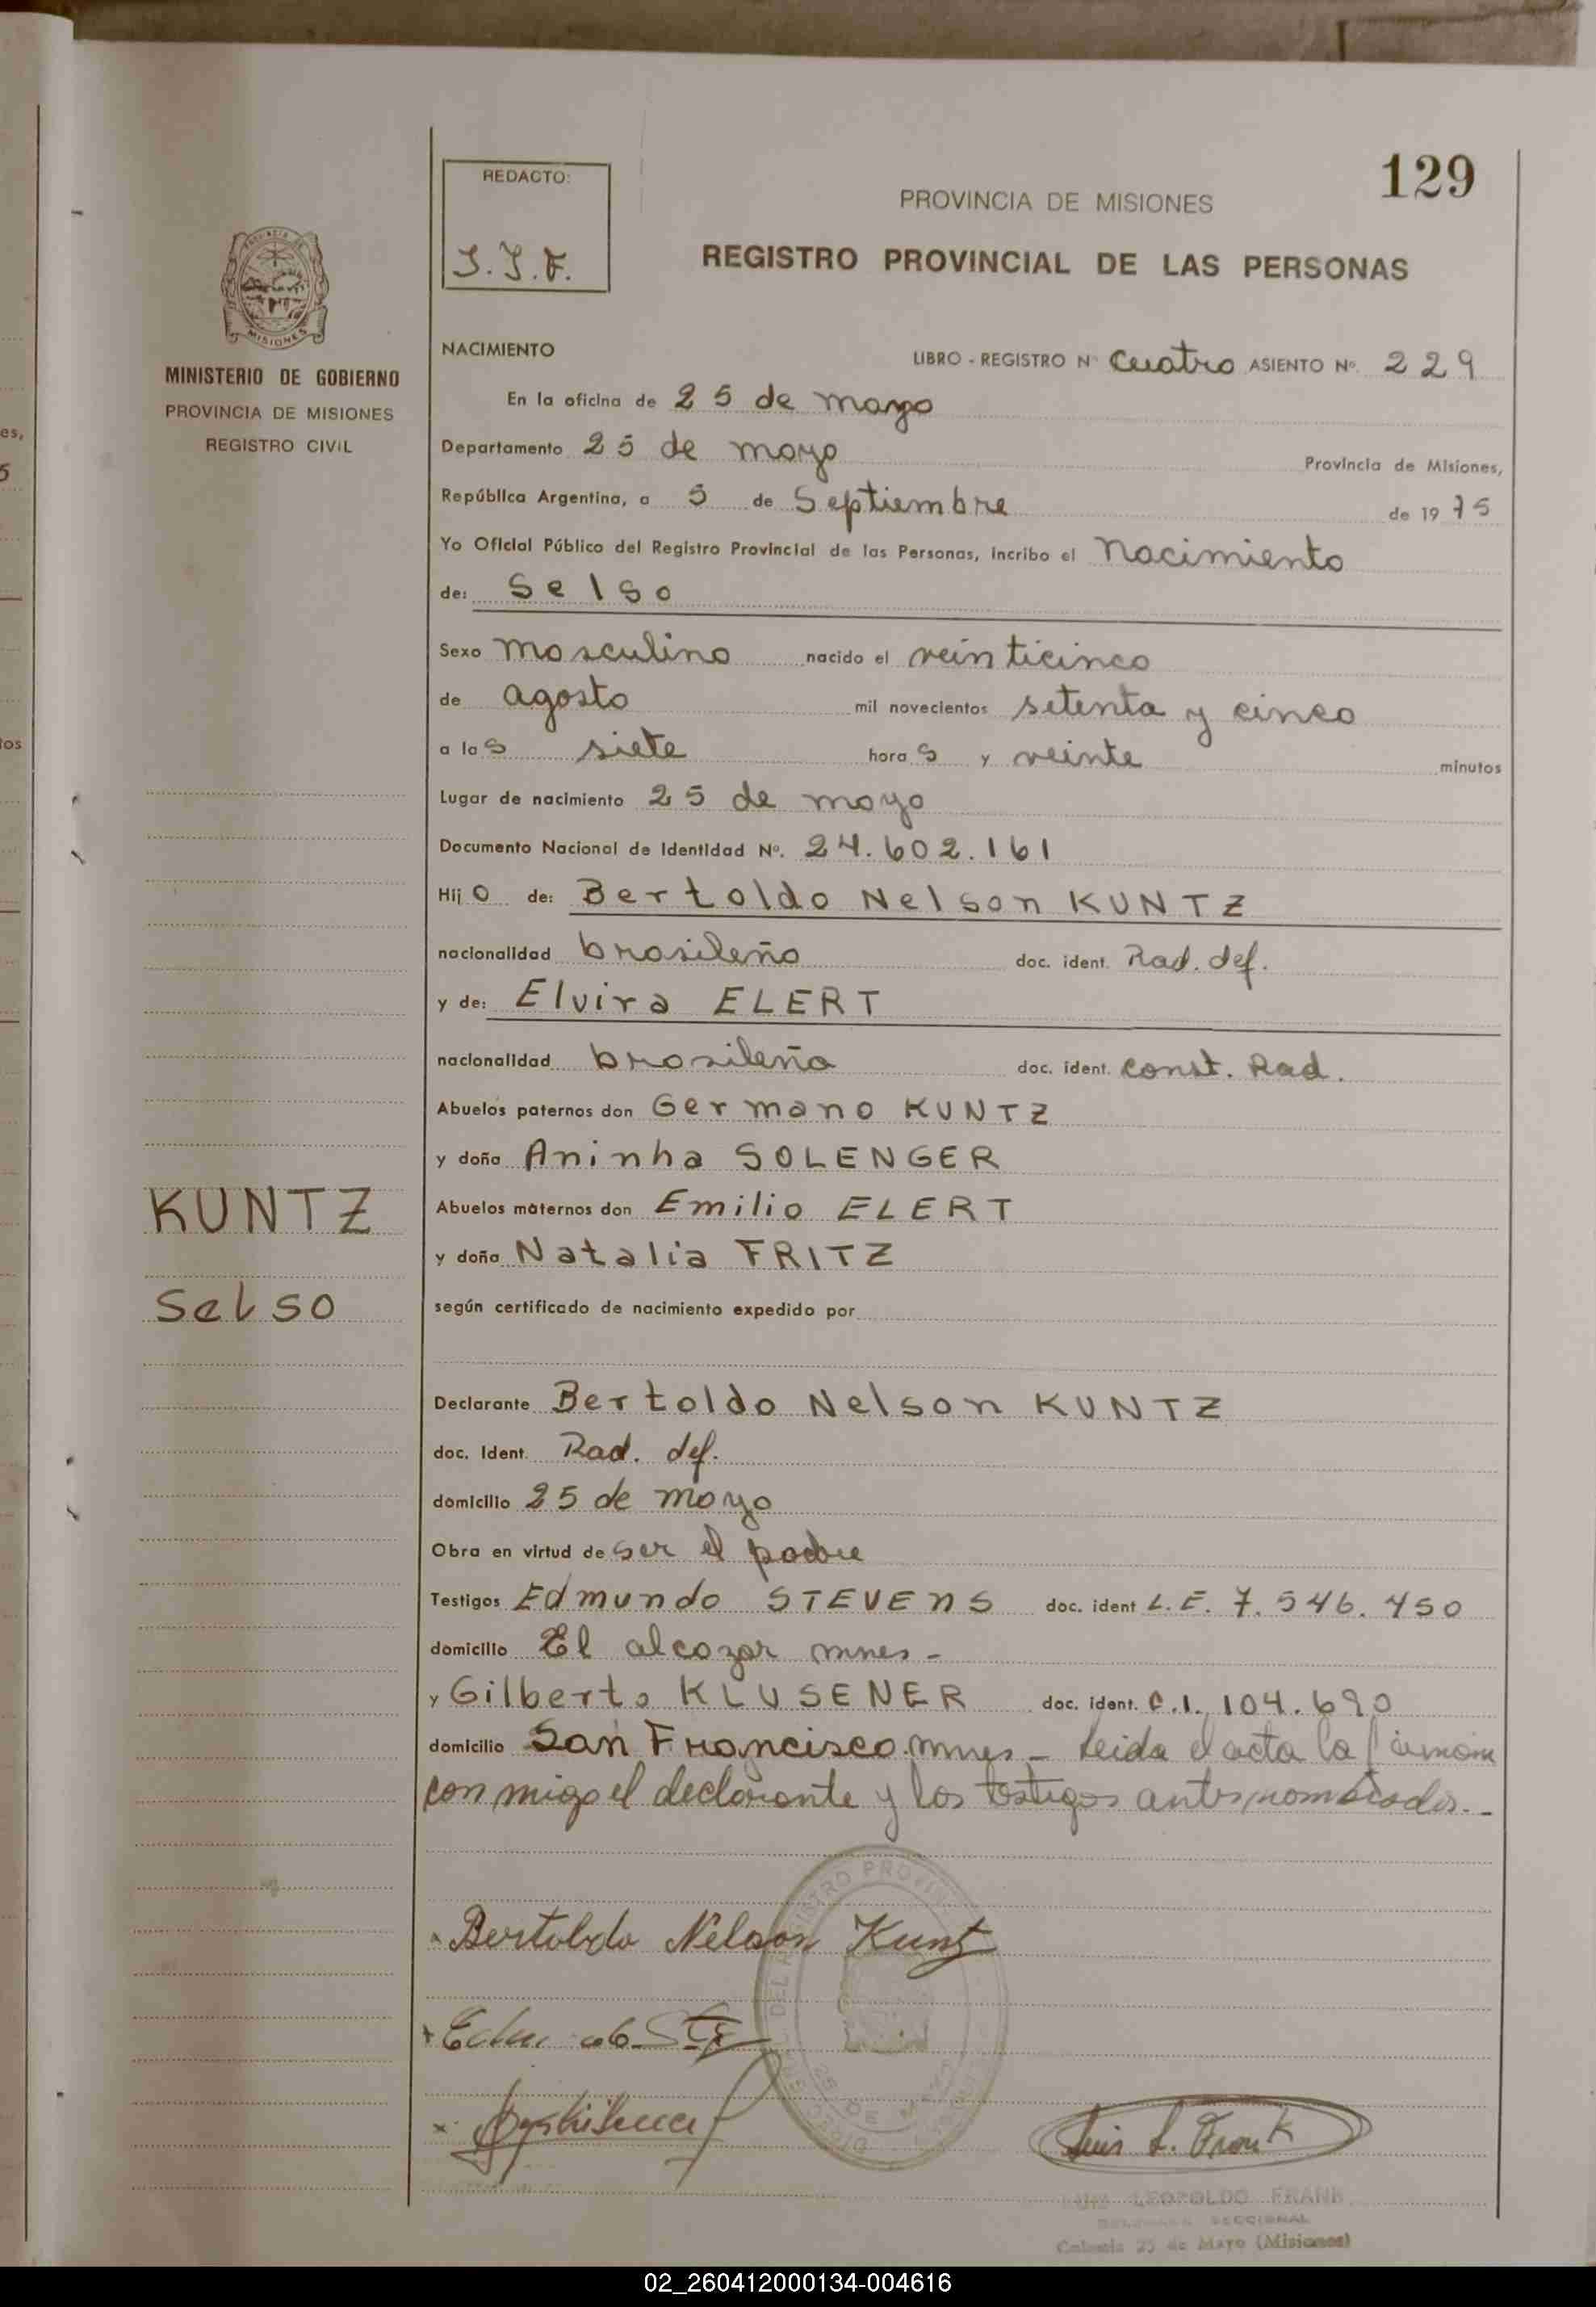 129
REDACTO:
J.J.F.
PROVINCIA DE MISIONES
REGISTRO PROVINCIAL DE LAS PERSONAS
PROVINCIA DE
MISIONES
MINISTERIO DE GOBIERNO
PROVINCIA DE MISIONES
REGISTRO CIVIL
NACIMIENTO LIBRO - REGISTRO Nº Cuatro ASIENTO Nº. 229
En la oficina de 25 de mayo
Departamento 25 de mayo Provincia de Misiones,
República Argentina, a 5 de Septiembre de 19 75
Yo Oficial Público del Registro Provincial de las Personas, incribo el nacimiento
de: Selso
Sexo masculino nacido el veinticinco
de agosto mil novecientos setenta y cinco
a las siete horas y veinte minutos
Lugar de nacimiento 25 de mayo
Documento Nacional de Identidad Nº. 24.602.161
Hijo de: Bertoldo Nelson KUNTZ
nacionalidad brasileño doc. ident. Rad. def.
y de: Elvira ELERT
nacionalidad brasileña doc. ident. const. Rad.
Abuelos paternos don Germano KUNTZ
y doña Aninha SOLENGER
KUNTZ
Abuelos maternos don Emilio ELERT
y doña Natalia FRITZ
Selso
según certificado de nacimiento expedido por
Declarante Bertoldo Nelson KUNTZ
doc. Ident. Rad. def.
domicilio 25 de mayo
Obra en virtud de ser el padre
Testigos Edmundo STEVENS doc. ident L.E. 7.546.450
domicilio El alcazar mnes-
y Gilberto KLUSENER doc. ident. C.I. 104.690
domicilio San Francisco mnes - Leida el acta la firman
con migo el declarante y los testigos antes nombrados.-
Bertoldo Nelson Kuntz
Luis L. Frank
LUIS LEOPOLDO FRANK
DELEGADO SECCIONAL
Colonia 25 de Mayo (Misiones)
02_260412000134-004616